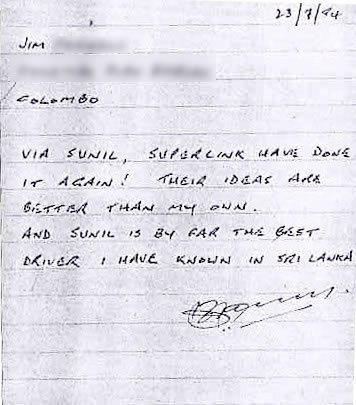 23/7/94
JIM
COLOMBO
VIA SUNIL, SUPERLINK HAVE DONE
IT AGAIN! THEIR IDEAS ARE
BETTER THAN MY OWN.
AND SUNIL IS BY FAR THE BEST
DRIVER I HAVE KNOWN IN SRI LANKA